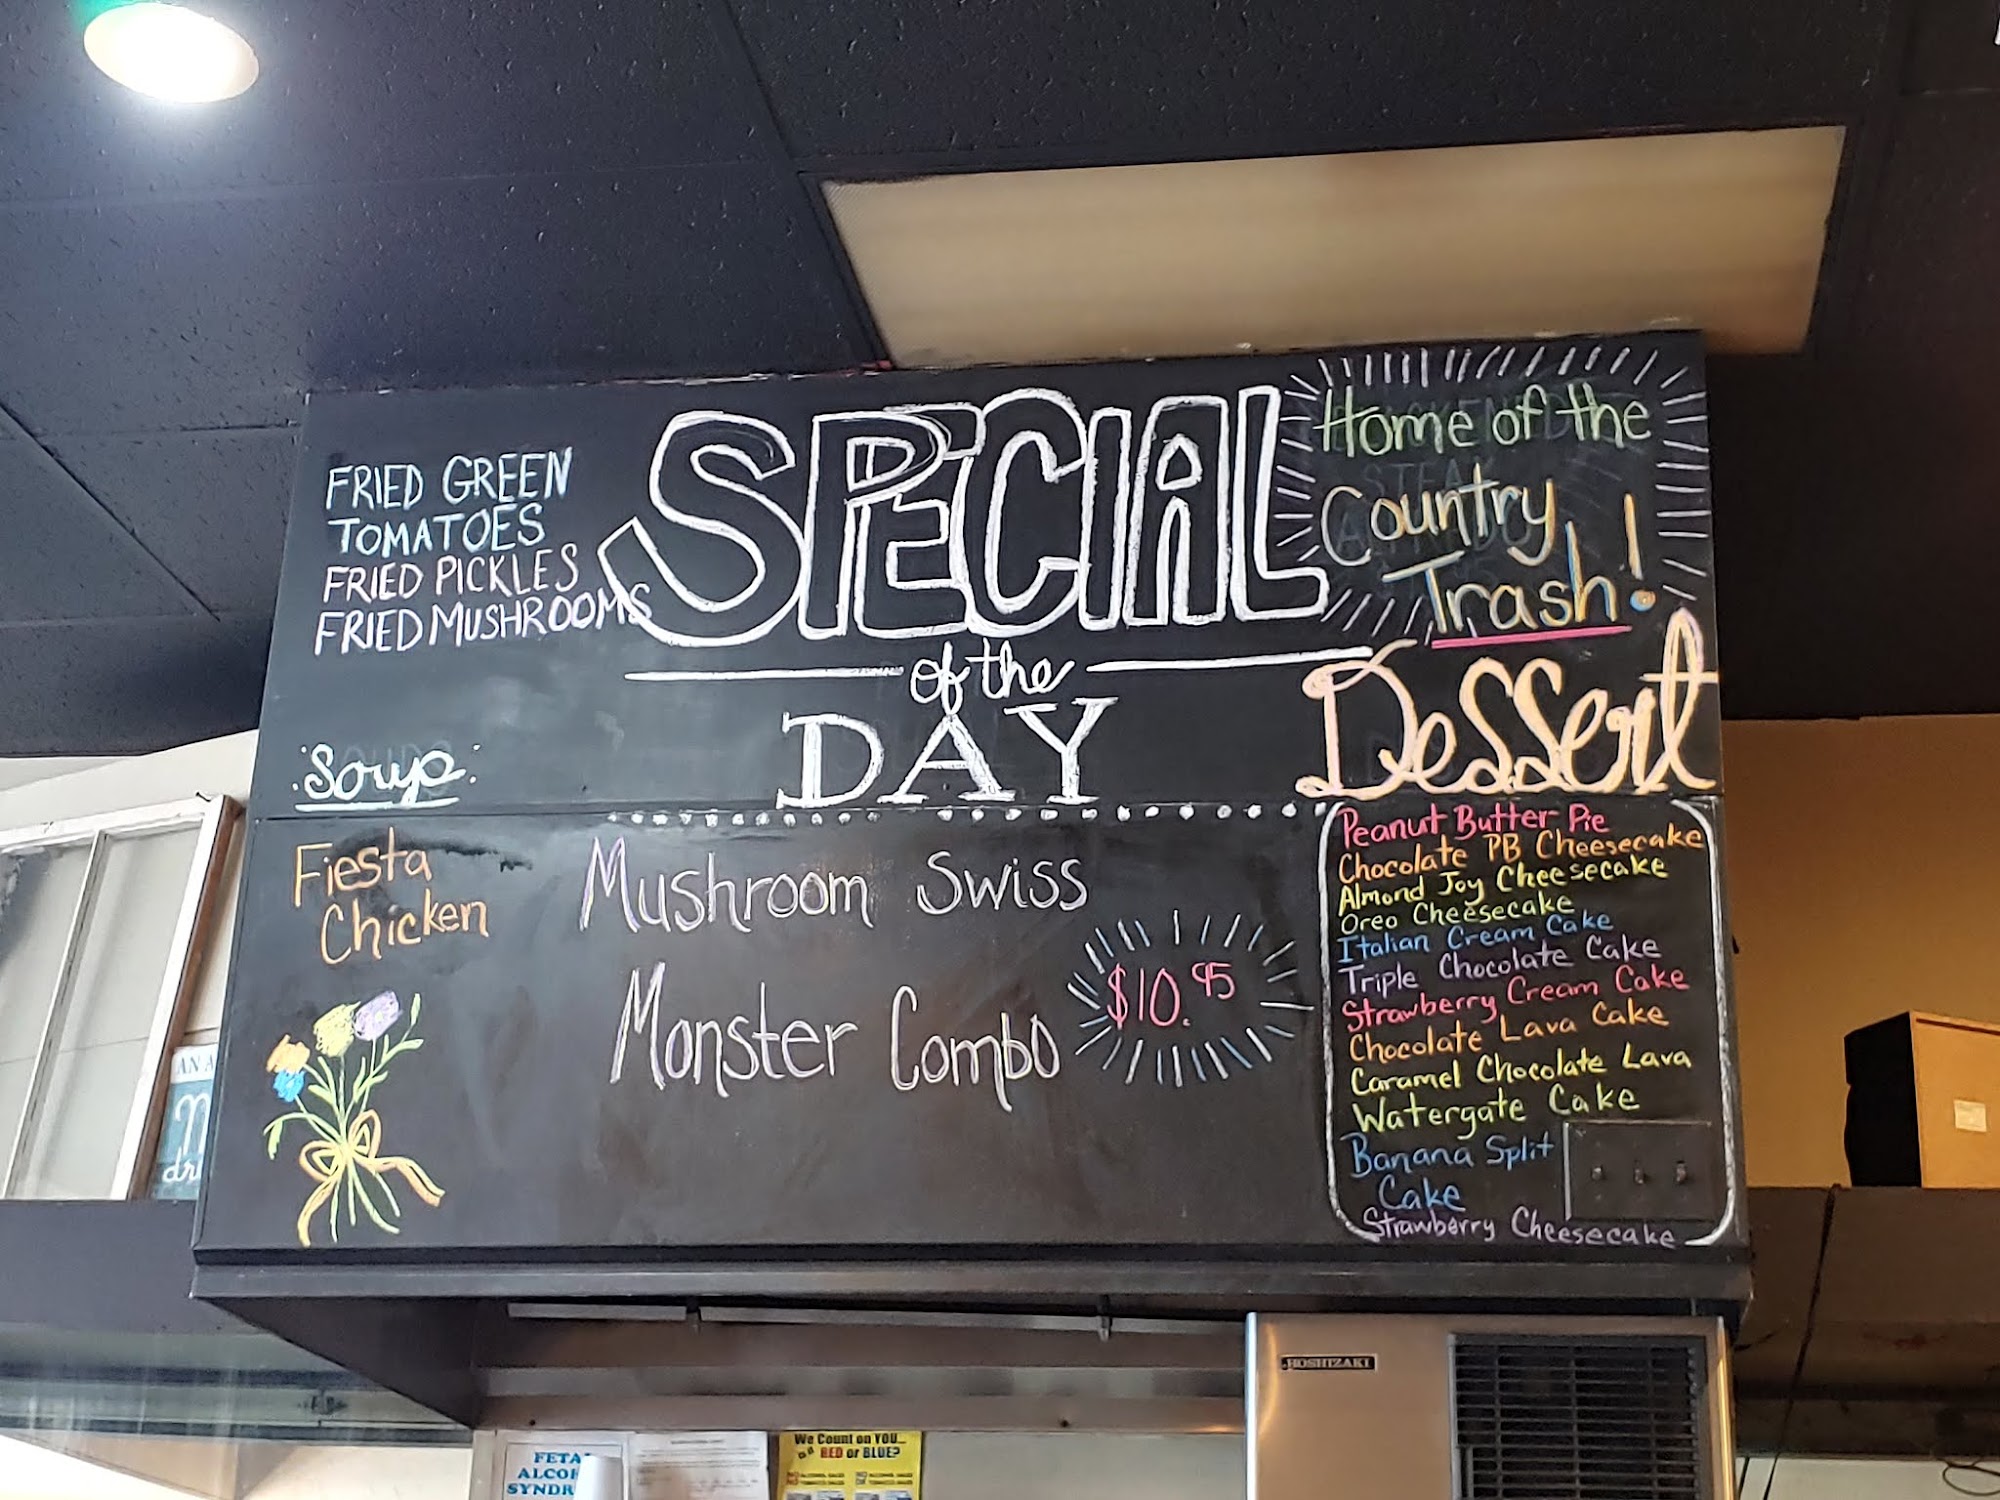 FRIED GREEN
TOMATOES
FRIED PICKLES
FRIED MUSHROOMS
SPECIAL
of the
DAY
Home of the
Country
Trash!
Soup
Fiesta
Chicken
Mushroom Swiss
Monster Combo
$10.95
Dessert
Peanut Butter Pie
Chocolate PB Cheesecake
Almond Joy Cheesecake
Oreo Cheesecake
Italian Cream Cake
Triple Chocolate Cake
Strawberry Cream Cake
Chocolate Lava Cake
Caramel Chocolate Lava
Watergate Cake
Banana Split
Cake
Strawberry Cheesecake
AN A
HOSHIZAKI
FETAL
ALCOH
SYNDR
We Count on YOU...
RED or BLUE?